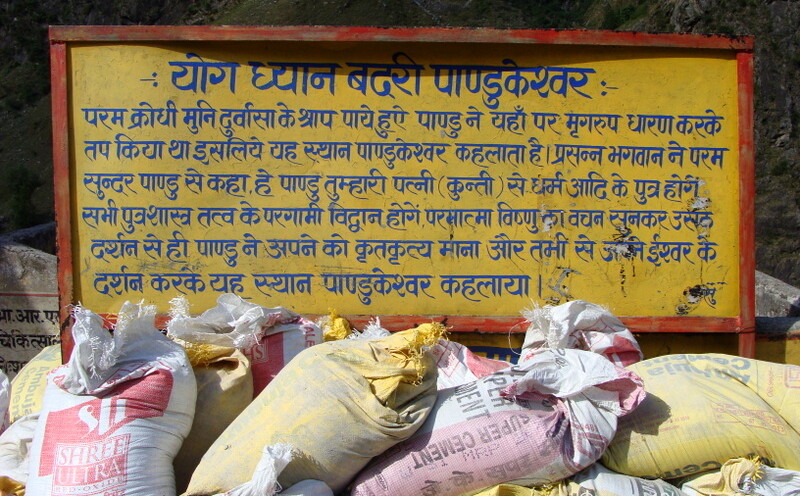 -: योग ध्यान बदरी पाण्डुकेश्वर :-
परम क्रोधी मुनि दुर्वासा के श्राप पाये हुऐ पाण्डु ने यहाँ पर मृगरुप धारण करके
तप किया था इसलिये यह स्थान पाण्डुकेश्वर कहलाता है। प्रसन्न भगवान ने परम
सुन्दर पाण्डु से कहा, हे पाण्डु तुम्हारी पत्नी (कुन्ती) से धर्म आदि के पुत्र होगें
सभी पुत्रशास्त्र तत्व के परगामी विद्वान होगें, परमात्मा विष्णु का वचन सुनकर उसके
दर्शन से ही पाण्डु ने अपने को कृतकृत्य माना और तभी से अपने ईश्वर के
दर्शन करके यह स्थान पाण्डुकेश्वर कहलाया।
आ.आर.एस
चिकित्सा
SHREE
ULTRA
RED-OXIDE
SUPER CEMENT
MRP